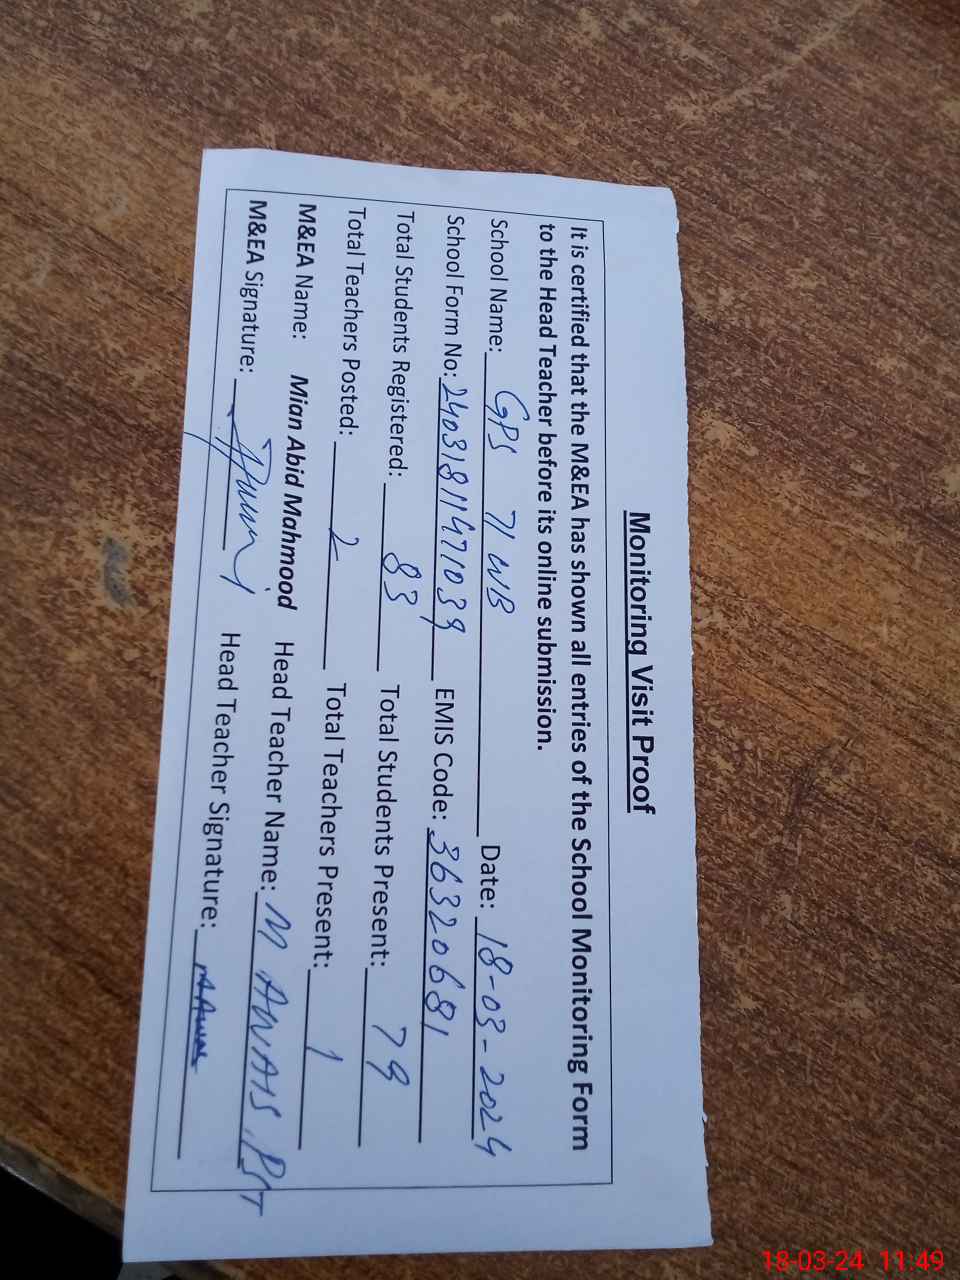 Monitoring Visit Proof
It is certified that the M&EA has shown all entries of the School Monitoring Form
to the Head Teacher before its online submission.
School Name: GPS 71 WB Date: 18-03-2024
School Form No: 24031811471039 EMIS Code: 36320681
Total Students Registered: 83 Total Students Present: 79
Total Teachers Posted: 2 Total Teachers Present: 1
M&EA Name: Mian Abid Mahmood Head Teacher Name: M AWAIS. PST
M&EA Signature: Head Teacher Signature:
18-03-24 11:49